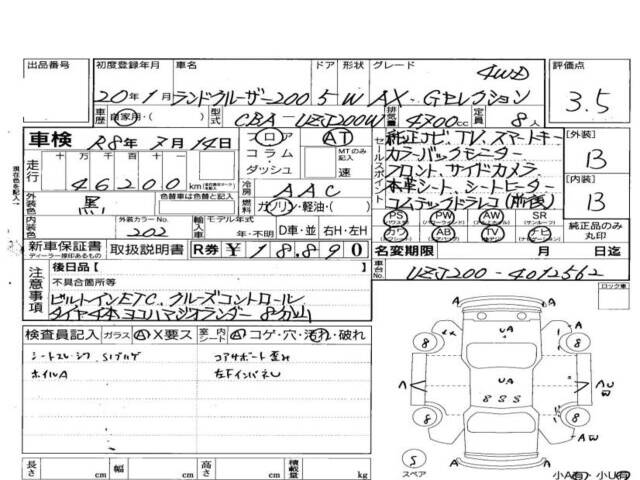 出品番号 初度登録年月 車名 ドア 形状 グレード 評価点
20年1月 ランドクルーザー200 5 W AX・Gセレクション 4WD 3.5
車歴 自家用・( ) 型式 CBA-UZJ200W 排気量 4700cc 定員 8人
現在色を記入
車検 R8年 7月14日 フロア AT
コラム MTのみ記入
ダッシュ 速
走行 十 万 千 百 十
46200 km
冷房 AAC
外装色 黒 色替車は色替と記入 燃料 ガソリン・軽油・( )
内装色 外装カラーNo. 202 輸入車 モデル年式 年・不明 D車・並 右H・左H
新車保証書 取扱説明書 R券 ¥18,890
ディーラー捺印あるもの
セールスポイント
純正ナビ、TV、スマートキー
カラーバックモニター
フロント、サイドカメラ
本革シート、シートヒーター
コムテックドラレコ(前後)
PS PW AW SR
(パワステ) (パワーウィンドウ) (サンルーフ)
カワ AB TV ナビ
[外装] B
[内装] B
純正品のみ丸印
名変期限 月 日迄
車台No. UZJ200-4012562
注意事項
後日品[ ]
不具合箇所等
ビルトインETC、クルーズコントロール
タイヤ4本ヨコハマジオランダー 8分山
検査員記入 ガラス A X要ス 室内 シート A コゲ・穴・汚れ・破れ
シートスレ・シワ コアサポート歪み
ホイルA 左FインパネU
ロック車
UA
A
8
8
UA
8 S S
A
AU
W
8
8
AW
A
A
S
スペア
小A(有)・ 小U(有)
長さ cm 幅 cm 高さ cm 積載量 kg